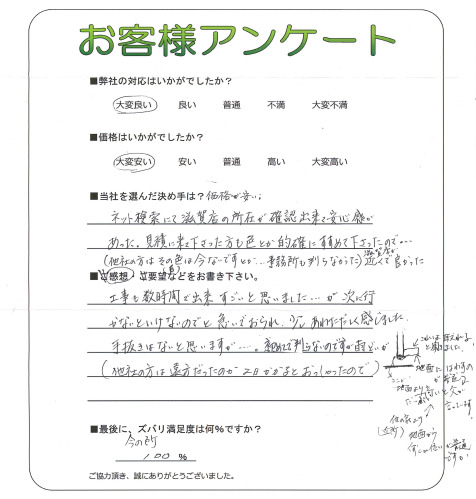 お客様アンケート
■弊社の対応はいかがでしたか？
大変良い 良い 普通 不満 大変不満
■価格はいかがでしたか？
大変安い 安い 普通 高い 大変高い
■当社を選んだ決め手は？ 価格が安い
ネット検索にて滋賀店の所在が確認出来て安心感が
あった。見積に来て下さった方も色とか的確にすすめて下さったので…
(他社の方はその色は今ないですとか… 事務所も判らなかった) 近くて良かった
■ご感想・ご要望などをお書き下さい。
工事も数時間で出来すごいと思いました…が次に行
かないといけないのでと急いでおられ、少しあわただしく感じました。
手抜きはないと思いますが…。初めてで判らないのですが
(他社の方は遠方だったのか2日かかるとおっしゃったので)
地面より
地面から
■最後に、ズバリ満足度は何%ですか？
今の所
100 %
ご協力頂き、誠にありがとうございました。